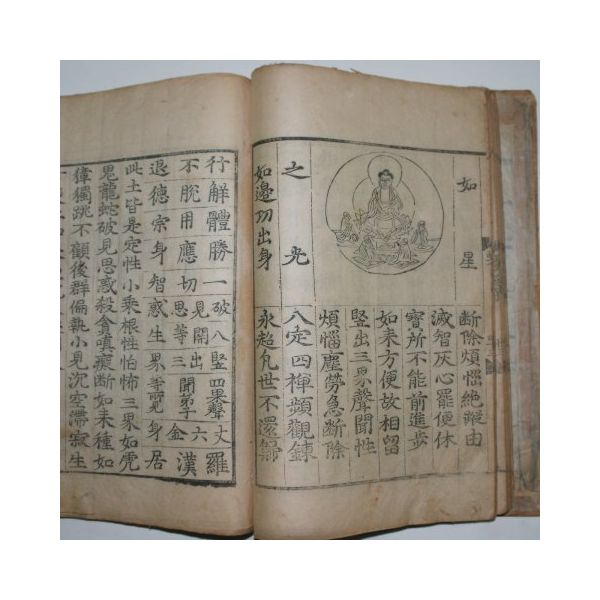 如星
之光
如邊功出身
斷除煩惱絶蹤由
滅智灰心罷便休
寶所不能前進步
如来方便故相留
竪出三界聲聞性
煩惱塵勞急斷除
八定四禪頻觀鍊
永超凡世不還歸
行解體勝一破八竪四果聲丈羅
不脫用應切見開出聞弟六漢
思等三子金
退德宗身智惑生界等覓身居
此土皆是定性小乘根性怕怖三界如虎
鬼龍蛇破見思惑殺貪嗔癡斷如来種如
獐獨跳不顧後群偏執小見沉空滯寂生